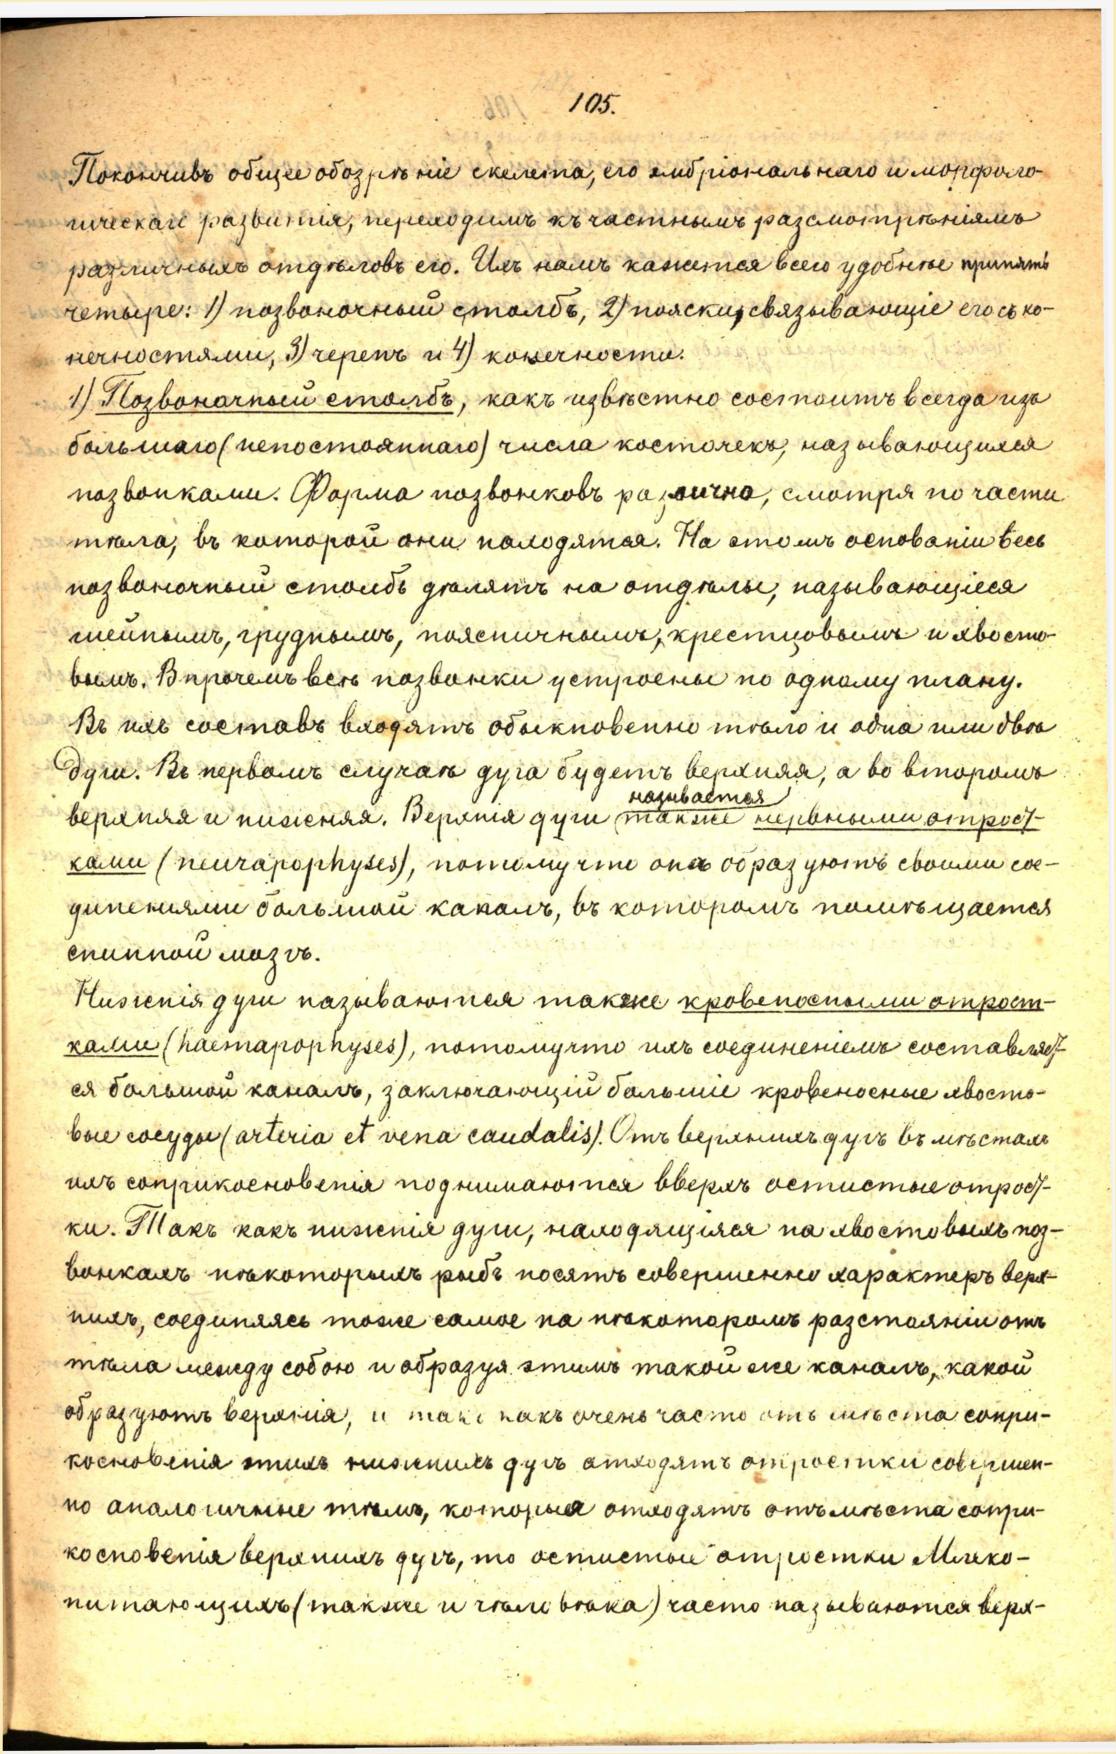 105.
Покончивъ общее обозрѣніе скелета, его эмбріональнаго и морфоло-
гическаго развитія, переходимъ къ частнымъ разсмотрѣніямъ
различныхъ отдѣловъ его. Ихъ намъ кажется всего удобнѣе принять
четыре: 1) позвоночный столбъ, 2) пояски, связывающіе его съ ко-
нечностями, 3) черепъ и 4) конечности.
1) Позвоночный столбъ, какъ извѣстно состоитъ всегда изъ
большаго (непостояннаго) числа косточекъ, называющихся
позвонками. Форма позвонковъ различна, смотря по части
тѣла, въ которой они находятся. На этомъ основаніи весь
позвоночный столбъ дѣлятъ на отдѣлы, называющіеся
шейнымъ, груднымъ, поясничнымъ, крестцовымъ и хвосто-
вымъ. Впрочемъ всѣ позвонки устроены по одному плану.
Въ ихъ составъ входятъ обыкновенно тѣло и одна или двѣ
дуги. Въ первомъ случаѣ дуга будетъ верхняя, а во второмъ
верхняя и нижняя. Верхнія дуги называется также нервными отрост-
ками (neurapophyses), потому что онѣ образуютъ своими сое-
диненіями большой каналъ, въ которомъ помѣщается
спинной мозгъ.
Нижнія дуги называются также кровеносными отрост-
ками (haemapophyses), потомучто ихъ соединеніемъ составляет-
ся большой каналъ, заключающій большіе кровеносные хвосто-
вые сосуды (arteria et vena caudalis). Отъ верхнихъ дугъ въ мѣстахъ
ихъ соприкосновенія поднимаются вверхъ остистые отрост-
ки. Такъ какъ нижнія дуги, находящіяся на хвостовыхъ поз-
вонкахъ нѣкоторыхъ рыбъ носятъ совершенно характеръ верх-
нихъ, соединяясь тоже самое на нѣкоторомъ разстояніи отъ
тѣла между собою и образуя этимъ такой же каналъ, какой
образуютъ верхнія, и такъ какъ очень часто отъ мѣста сопри-
косновенія этихъ нижнихъ дугъ отходятъ отростки совершен-
но аналогичные тѣмъ, которыя отходятъ отъ мѣста сопри-
косновенія верхнихъ дугъ, то остистые отростки Млеко-
питающихъ (также и человѣка) часто называются верх-